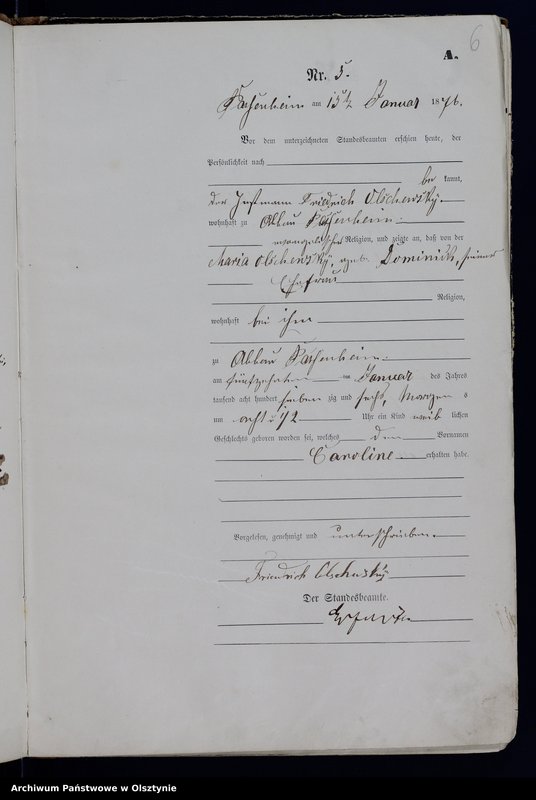 6
A.
Nr. 5.
Passenheim am 15ten Januar 1876.
Vor dem unterzeichneten Standesbeamten erschien heute, der
Persönlichkeit nach
be kannt,
der Instmann Friedrich Olschewsky
wohnhaft zu Abbau Passenheim
evangelischer Religion, und zeigte an, daß von der
Maria Olschewsky, geb. Dominick, seiner
Ehefrau
Religion,
wohnhaft bei ihm
zu Abbau Passenheim
am fünfzehnten ten Januar des Jahres
tausend acht hundert sieben zig und sechs, Morgens
um acht 1/2 Uhr ein Kind weib lichen
Geschlechts geboren worden sei, welches den Vornamen
Caroline erhalten habe.
Vorgelesen, genehmigt und unterschrieben
Friedrich Olschewsky
Der Standesbeamte.
Archiwum Państwowe w Olsztynie